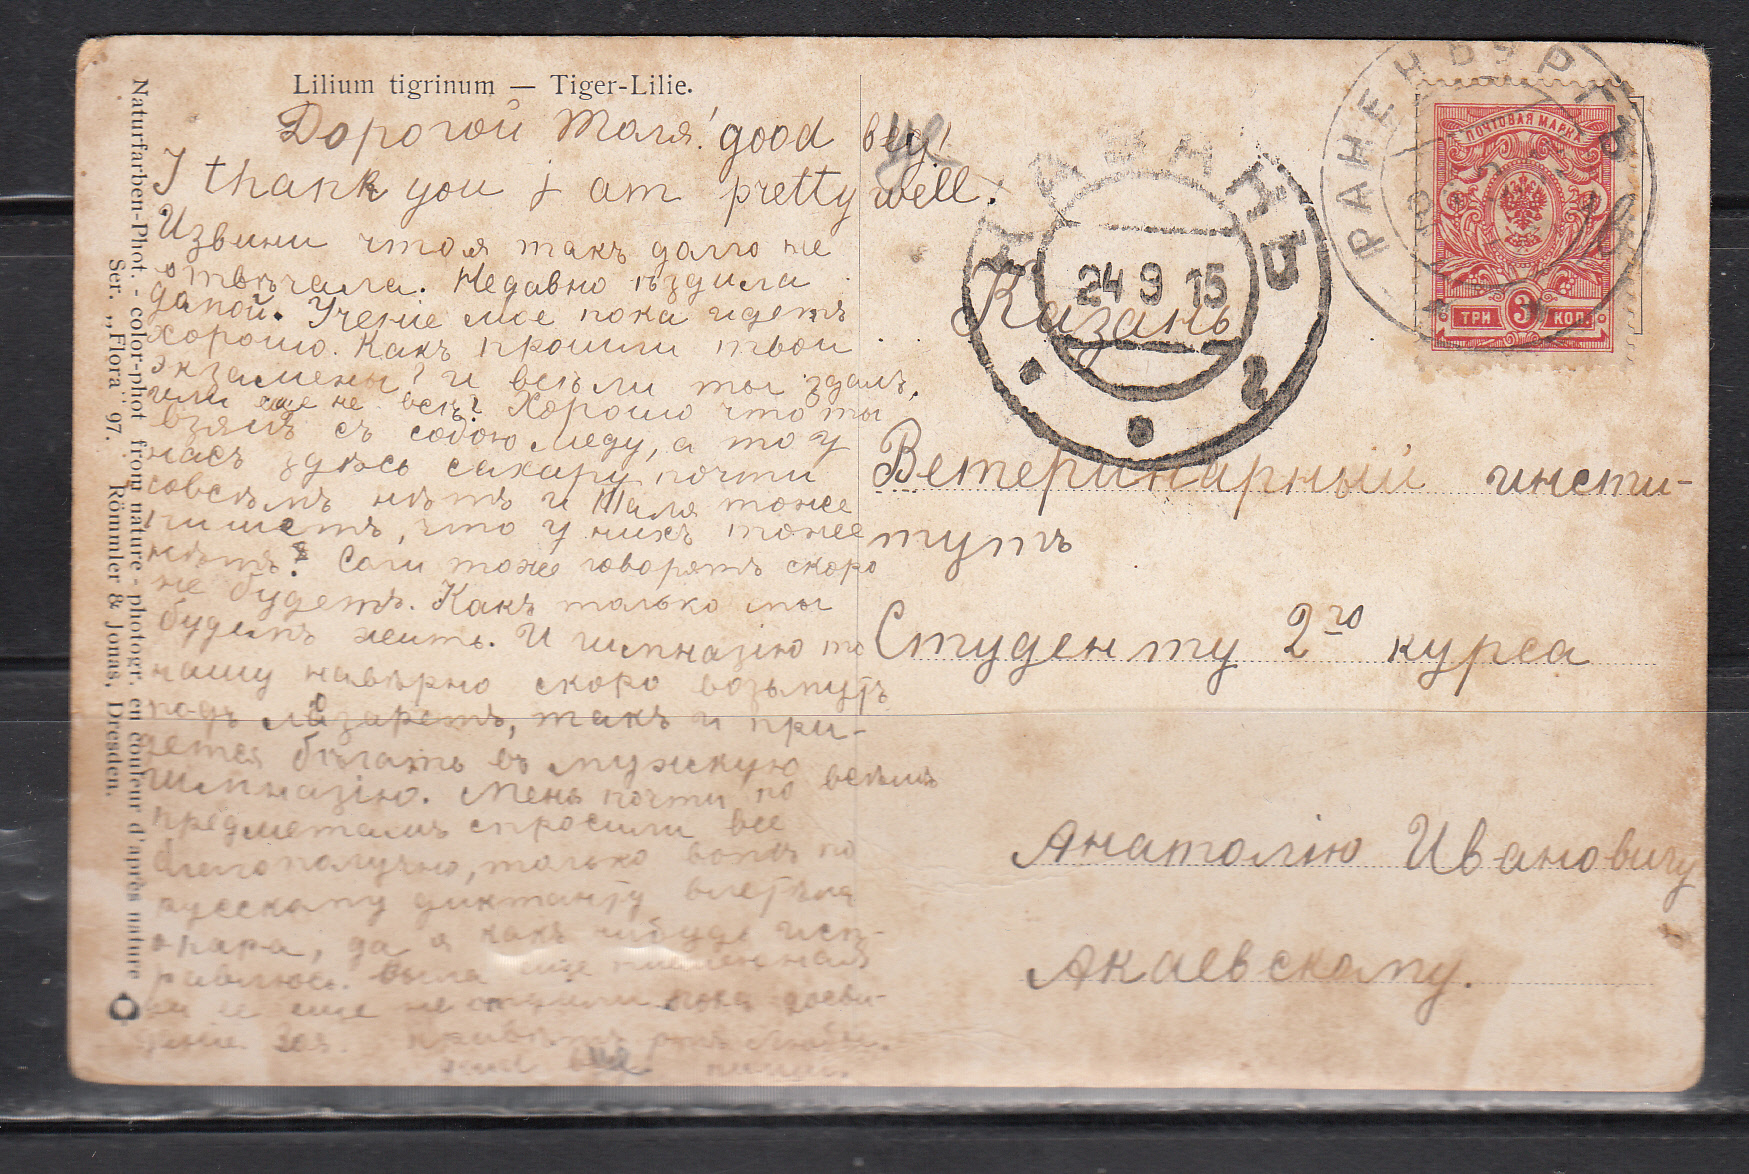 Lilium tigrinum — Tiger-Lilie.
Дорогой Толя! good
I thank you I am pretty well.
Извини что я такъ долго не
отвѣчала. Недавно ѣздила
домой. Ученіе мое пока идетъ
хорошо. Какъ прошли твои
экзамены? и всѣ ли ты здалъ,
или еще не всѣ? Хорошо что ты
взялъ съ собою меду, а то у
насъ здѣсь сахару почти
совсѣмъ нѣтъ и Таля тоже
пишетъ, что у нихъ тоже
нѣтъ. Соли тоже говорятъ скоро
не будетъ. Какъ только мы
будемъ жить. И гимназію то
нашу навѣрно скоро возьмутъ
подъ лазаретъ, такъ и при-
дется бѣгать въ мужскую
гимназію. Меня почти по всѣмъ
предметамъ спросили все
благополучно, только вотъ по
русскому диктанту влетѣла
пара, да я какъ нибудь исп-
равлюсь. Была еще письменная
ее еще не пока досви-
данія. Зоя. привѣтъ
Казань
Ветеринарный инсти-
тутъ
Студенту 2го курса
Анатолію Ивановичу
Акаевскому.
РАНЕНБУРГЪ
24 9 15
2
ПОЧТОВАЯ МАРКА
ТРИ 3 КОП.
Naturfarben-Phot. - color-phot from nature - photogr. en couleur d'après nature
Ser. „Flora" 97. Römmler & Jonas, Dresden.